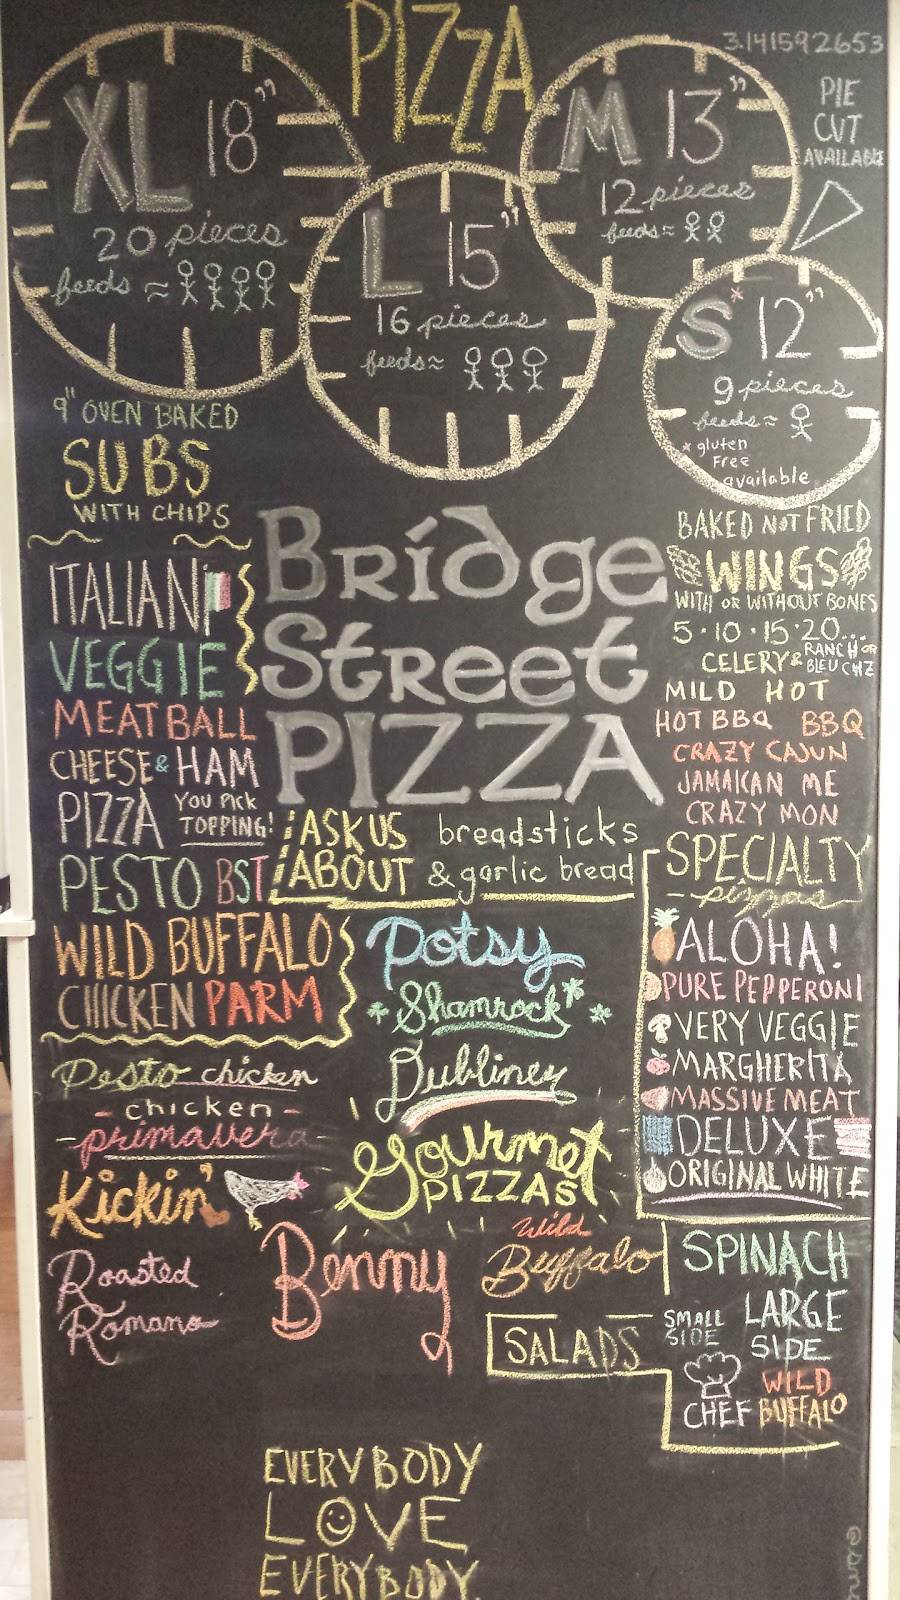 PIZZA
3.141592653
PIE
CUT
AVAILABLE
XL 18"
20 pieces
feeds ≈
L 15"
16 pieces
feeds ≈
M 13"
12 pieces
feeds ≈
S* 12"
9 pieces
feeds ≈
* gluten
Free
available
9" OVEN BAKED
SUBS
WITH CHIPS
ITALIAN
VEGGIE
MEATBALL
CHEESE & HAM
PIZZA YOU PICK
TOPPING!
PESTO BST
WILD BUFFALO
CHICKEN PARM
Bridge
Street
PIZZA
ASK US
ABOUT
breadsticks
& garlic bread
BAKED NOT FRIED
WINGS
WITH OR WITHOUT BONES
5 · 10 · 15 · 20...
CELERY & RANCH OR
BLEU CHZ
MILD HOT
HOT BBQ BBQ
CRAZY CAJUN
JAMAICAN ME
CRAZY MON
SPECIALTY
pizzas
ALOHA!
PURE PEPPERONI
VERY VEGGIE
MARGHERITA
MASSIVE MEAT
DELUXE
ORIGINAL WHITE
Potsy
Shamrock
Dubliner
Gourmet
PIZZAS
Pesto chicken
- chicken -
- primavera -
Kickin'
Roasted
Romano
Benny
Wild
Buffalo
SALADS
SPINACH
SMALL
SIDE
LARGE
SIDE
CHEF
WILD
BUFFALO
EVERYBODY
LOVE
EVERYBODY.